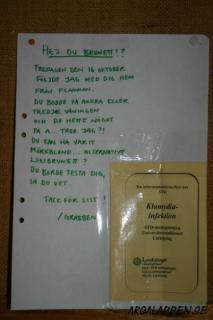 HEJ DU BRUNETT!?
TREDAGEN DEN 16 OKTOBER
FÖLJDE JAG MED DIG HEM
FRÅN FLAMMAN.
DU BODDE PÅ ANDRA ELLER
TREDJE VÅNINGEN
OCH DU HETTE NÅGOT
PÅ A... TROR JAG?!
DU KAN HA VARIT
MÖRKBLOND... ALTERNATIVT
LJUSBRUNETT?
DU BORDE TESTA DIG,
SÅ DU VET.
TACK FÖR SIST!
/GRABBEN
En informationsbroschyr om
Klamydia-
infektion
STD-mottagningen
Universitetssjukhuset
Linköping
Landstinget
ARGALAPPEN.SE